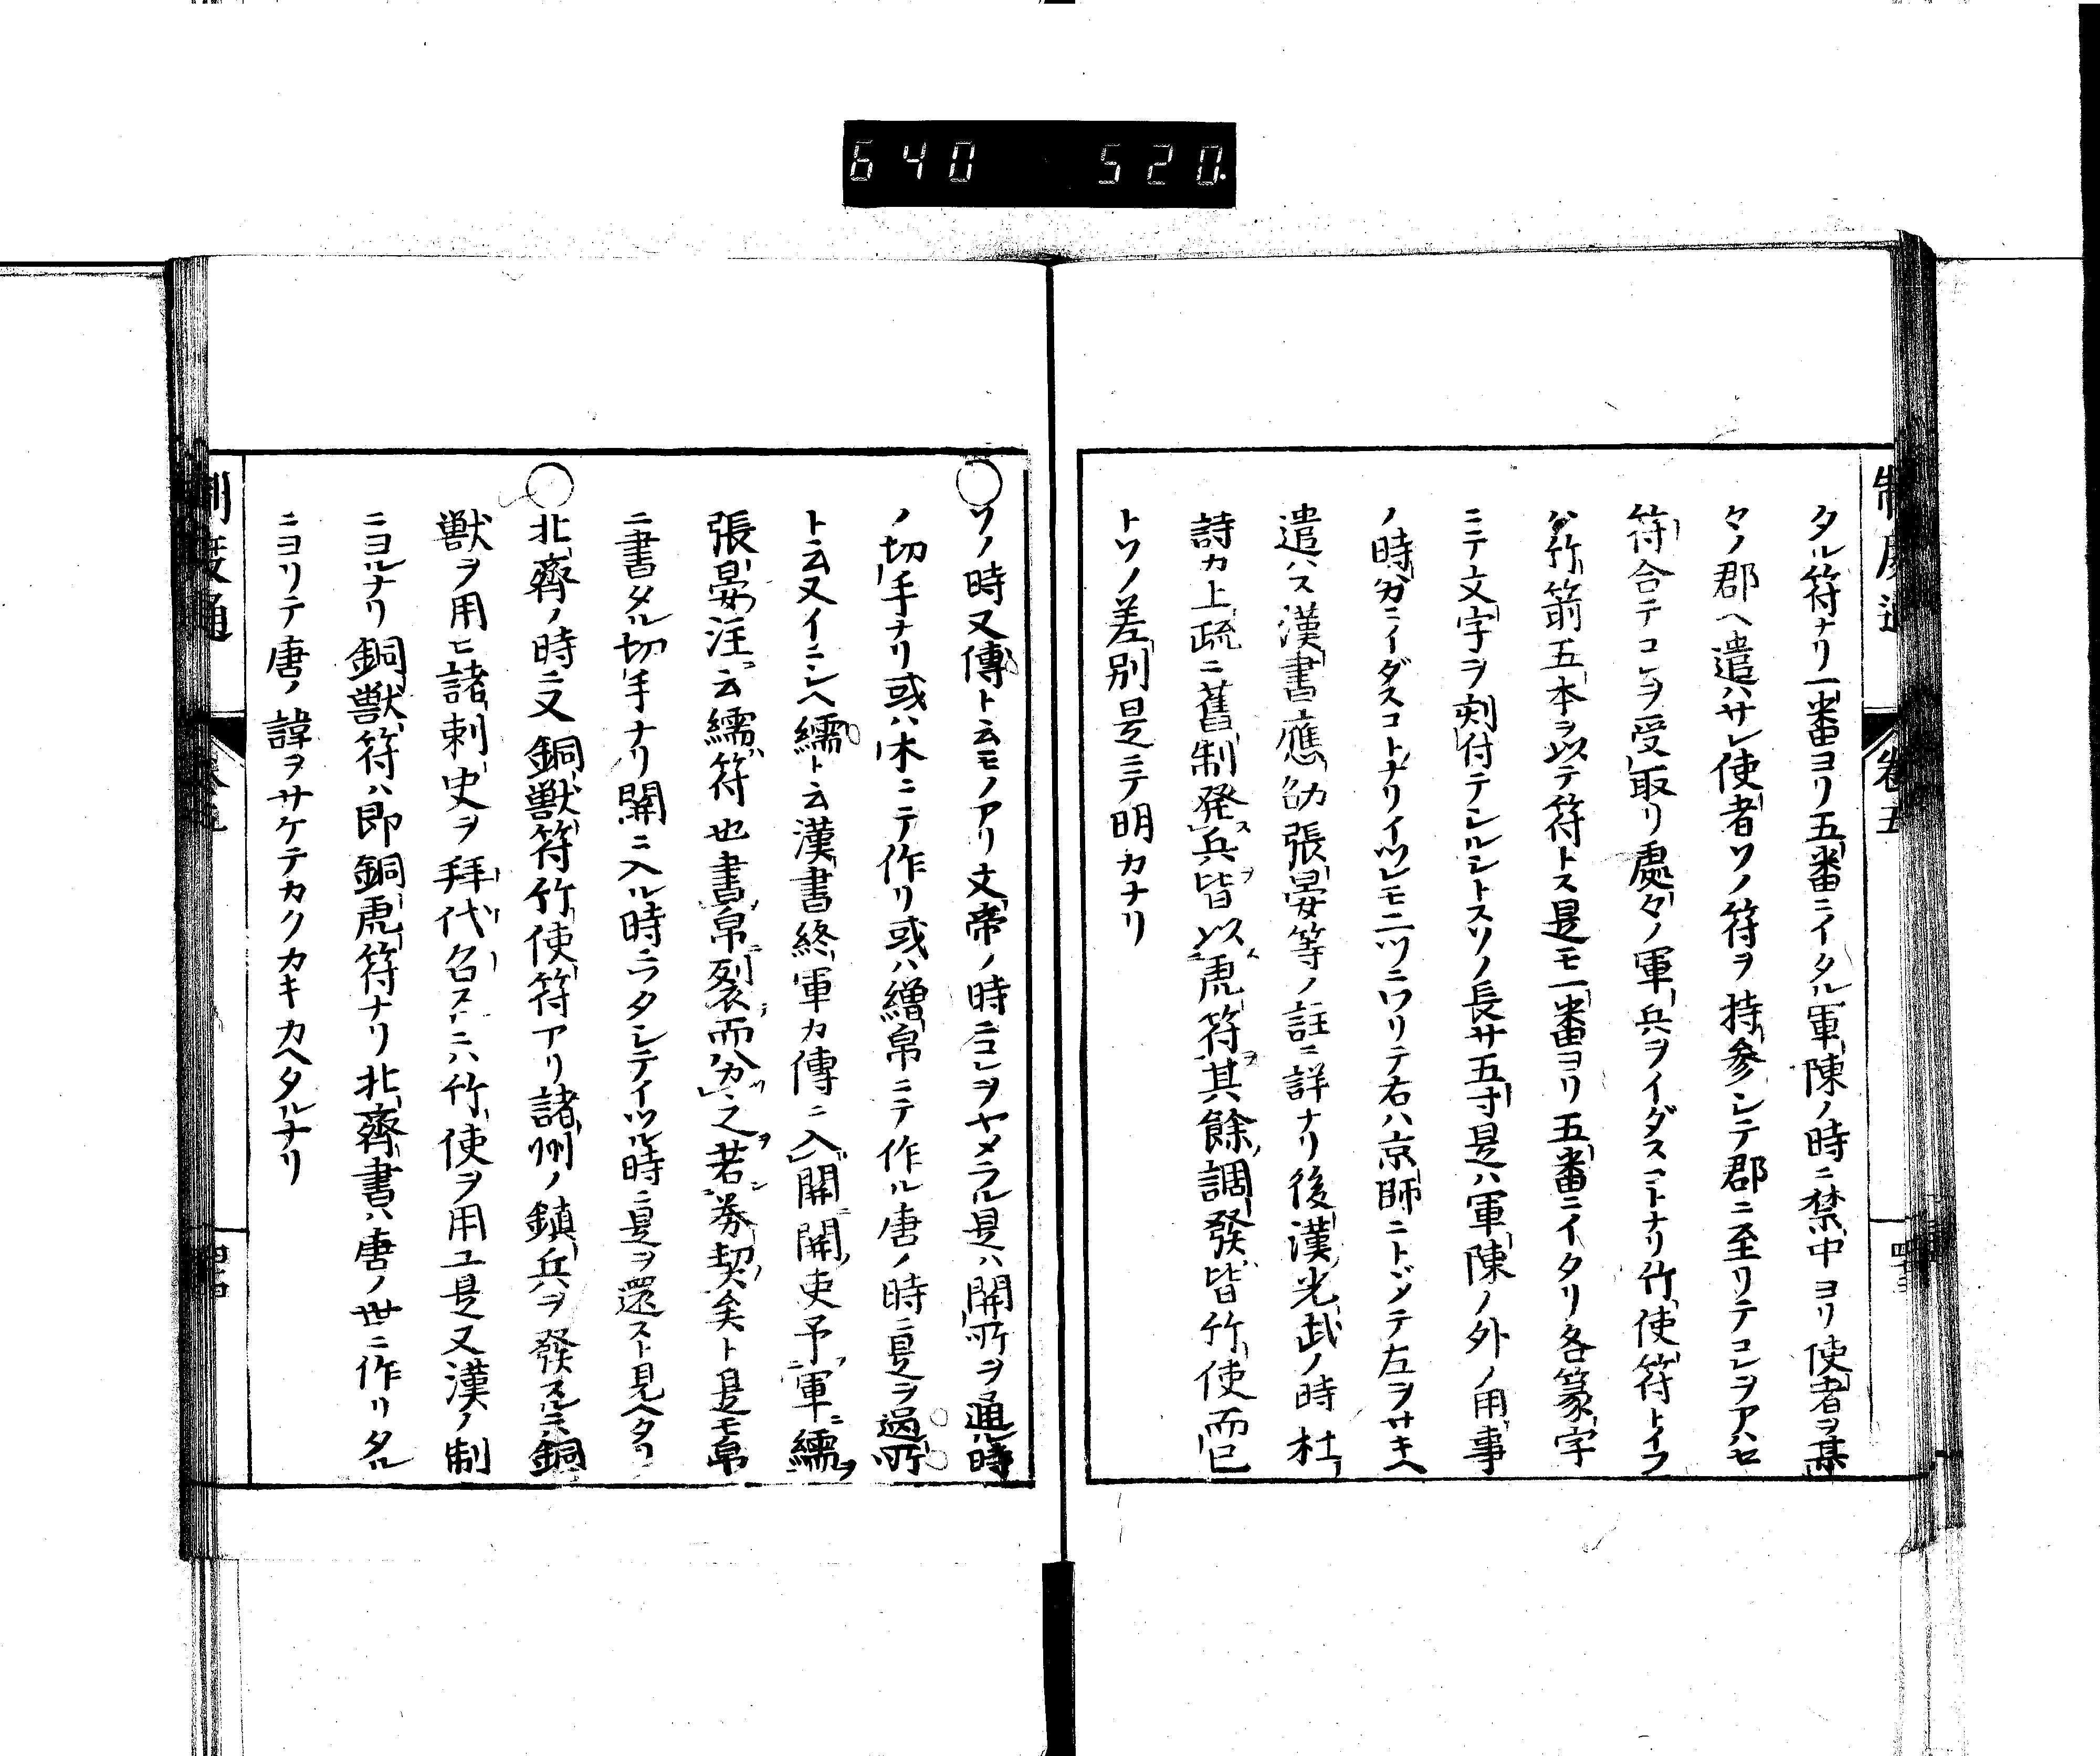 640 520.
制度通 卷五
タル符ナリ一番ヨリ五番ニイタル軍陳ノ時ニ禁中ヨリ使者ヲ某
々ノ郡ヘ遣ハサレ使者ソノ符ヲ持参シテ郡ニ至リテコレヲアハセ
符合テコレヲ受取リ處々ノ軍兵ヲイダスコトナリ竹使符トイフ
ハ竹箭五本ヲ以テ符トス是モ一番ヨリ五番ニイタリ各篆字
ニテ文字ヲ刻付テシルシトスソノ長サ五寸是ハ軍陳ノ外ノ用事
ノ時分ニイダスコトナリイツレモ二ツニワリテ右ハ京師ニトドメ左ヲサキヘ
遣ハス漢書應劭張晏等ノ註ニ詳ナリ後漢光武ノ時杜
詩カ上疏ニ舊制発兵皆以虎符其餘調發皆竹使而已
トソノ差別是ニテ明カナリ
〇ソノ時又傳ト云モノアリ文帝ノ時ニコレヲヤメラル是ハ関所ヲ通ル時
ノ切手ナリ或ハ木ニテ作リ或ハ繒帛ニテ作ル唐ノ時ニ是ヲ過所
ト云又イニシヘ繻ト云漢書終軍カ傳ニ入関関吏予軍繻ヲ
張晏注云繻符也書帛裂而分之若券契矣ト是モ帛
ニ書タル切手ナリ関ニ入ル時ニワタシテイツル時ニ是ヲ還スト見ヘタリ
〇北齊ノ時ニ又銅獣符竹使符アリ諸州ノ鎮兵ヲ發スルニハ銅
獣ヲ用ヒ諸刺史ヲ拜代召スルニハ竹使ヲ用ユ是又漢ノ制
ニヨルナリ銅獣符ハ即銅虎符ナリ北齊書ハ唐ノ世ニ作リタル
ニヨリテ唐ノ諱ヲサケテカクカキカヘタルナリ
制度通